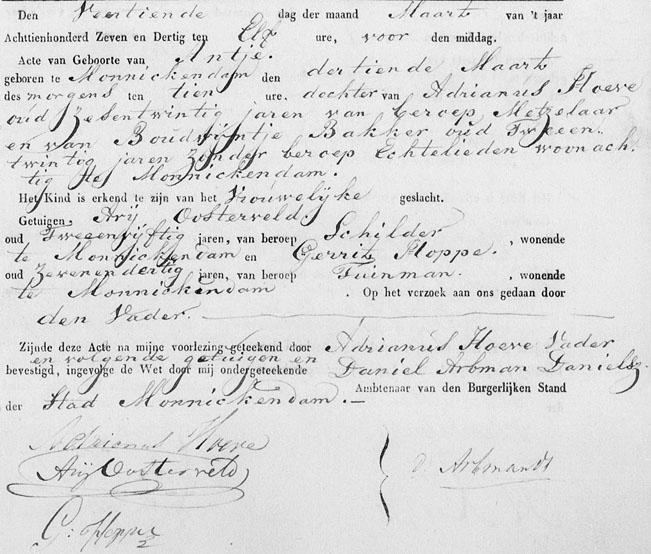 Den Veertiende dag der maand Maart van 't jaar
Achtienhonderd Zeven en Dertig ten Elf ure, voor den middag.
Acte van Geboorte van Antje.
geboren te Monnickendam den dertiende Maart
des morgens ten tien ure, dochter van Adrianus Hoeve
oud Zesentwintig jaren van beroep Metzelaar
en van Boudwijntje Bakker oud Tweeen
twintig jaren zonder beroep Echtelieden woonach
tig te Monnickendam.
Het Kind is erkend te zijn van het Vrouwelijke geslacht.
Getuigen, Arij Oosterveld.
oud Tweeenvijftig jaren, van beroep Schilder, wonende
te Monnickendam en Gerrit Hoppe.
oud Zevenendertig jaren, van beroep Tuinman, wonende
te Monnickendam. Op het verzoek aan ons gedaan door
den Vader.
Zijnde deze Acte na mijne voorlezing geteekend door Adrianus Hoeve Vader
en volgende getuigen en
bevestigd, ingevolge de Wet door mij ondergeteekende Daniel Arbman Danielsz.
Ambtenaar van den Burgerlijken Stand
der Stad Monnickendam.
Adrianus Hoeve
Arij Oosterveld
G: Hoppe
D. Arbmandz